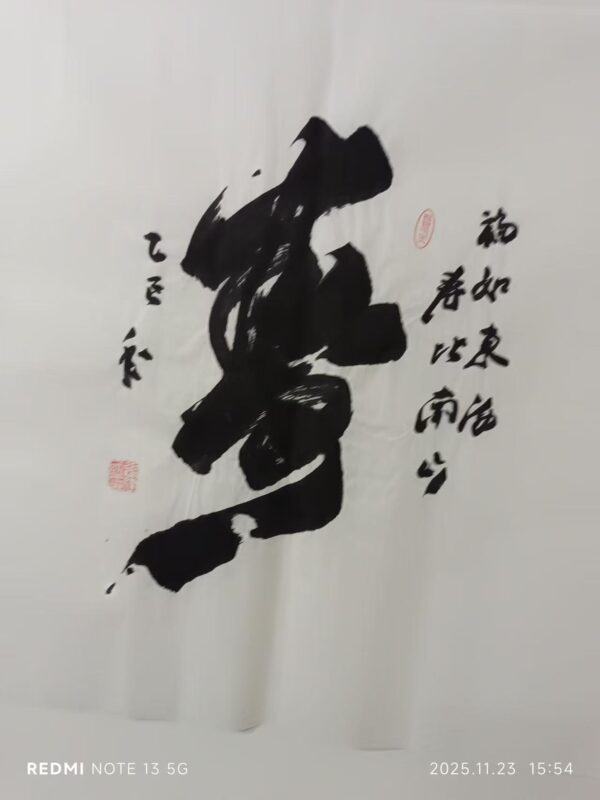 福如東海
寿比南山
寿
乙巳秋
REDMI NOTE 13 5G
2025.11.23 15:54